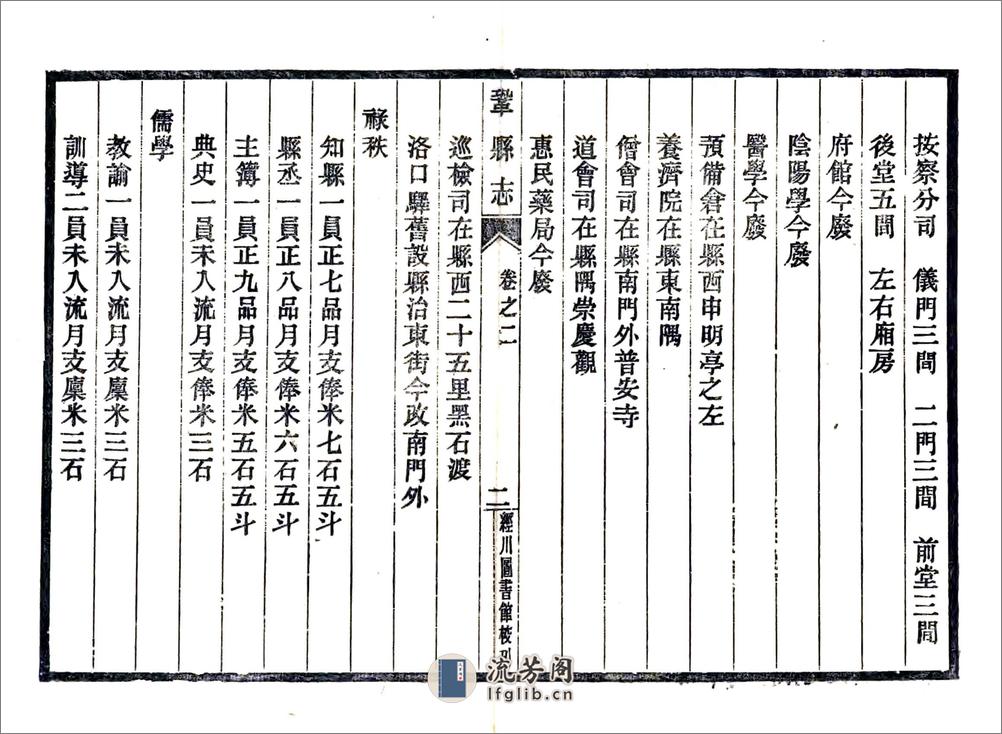 按察分司 儀門三間 二門三間 前堂三間
後堂五間 左右廂房
府館今廢
陰陽學今廢
醫學今廢
預備倉在縣西申明亭之左
養濟院在縣東南隅
僧會司在縣南門外普安寺
道會司在縣隅崇慶觀
惠民藥局今廢
鞏縣志 卷之二 二 經川圖書館校刋
巡檢司在縣西二十五里黑石渡
洛口驛舊設縣治東街今政南門外
祿秩
知縣一員正七品月支俸米七石五斗
縣丞一員正八品月支俸米六石五斗
主簿一員正九品月支俸米五石五斗
典史一員未入流月支俸米三石
儒學
教諭一員未入流月支廩米三石
訓導二員未入流月支廩米三石
流芳阁
lfglib.cn